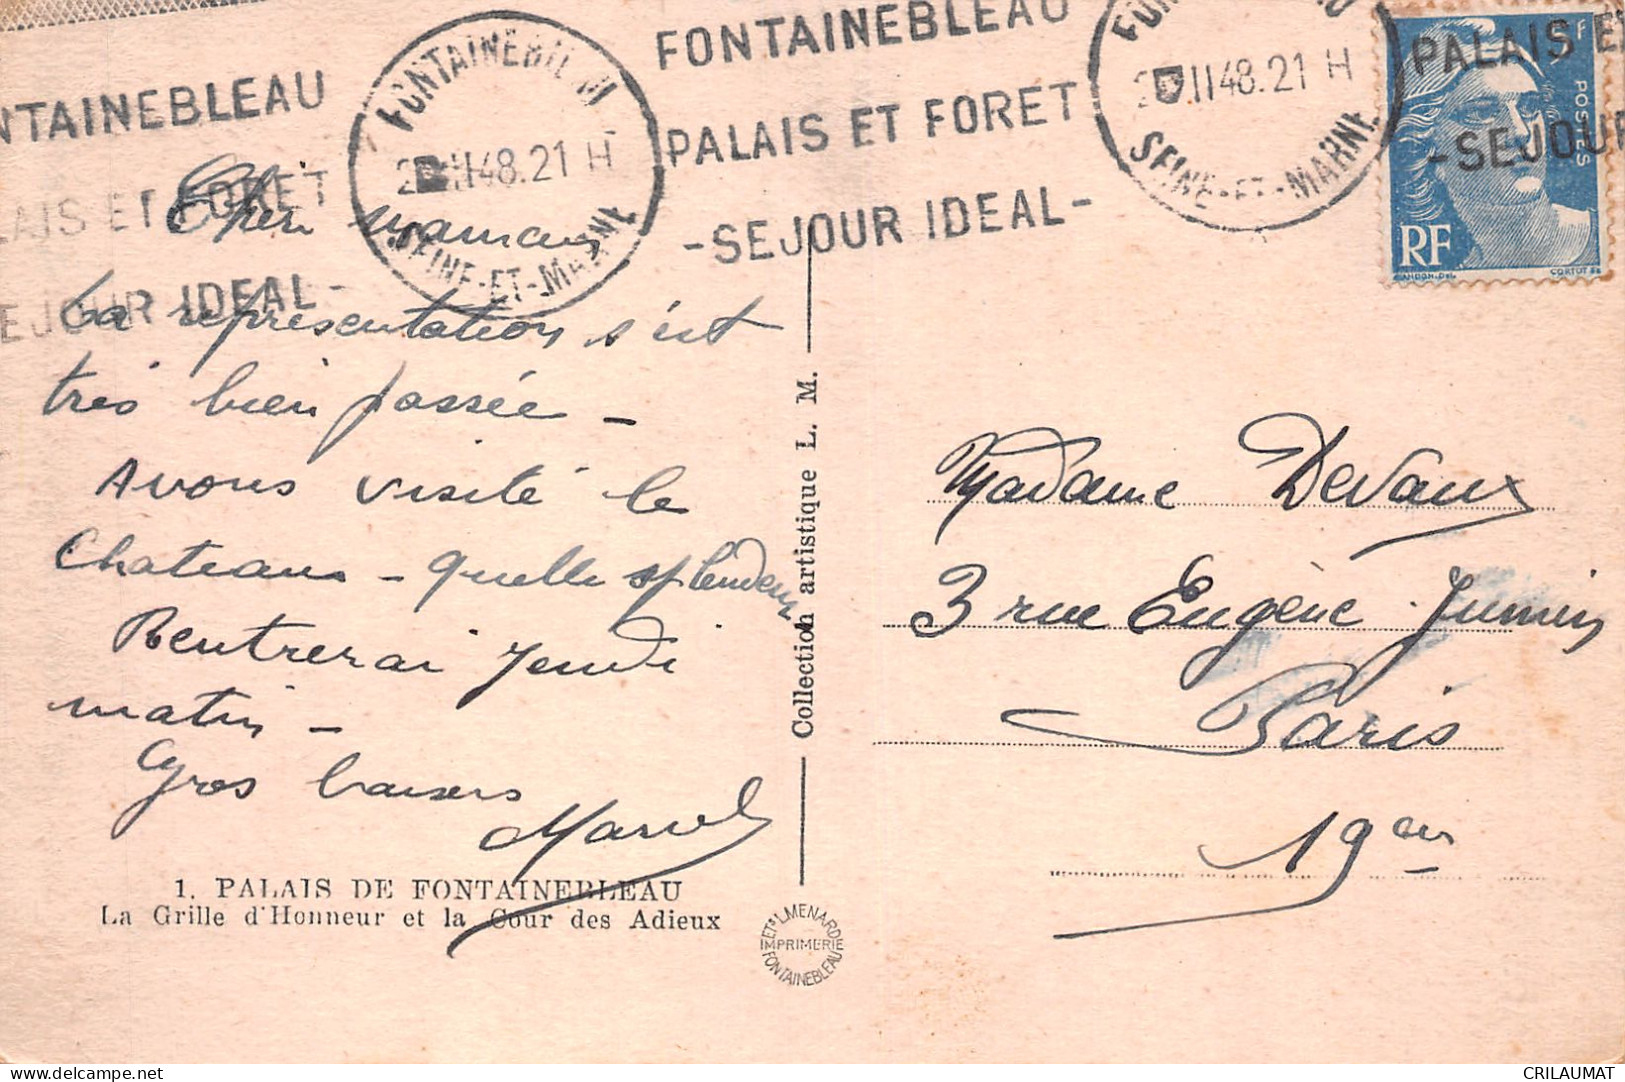 FONTAINEBLEAU
PALAIS ET FORET
-SEJOUR IDEAL-
NTAINEBLEAU
LAIS ET FORET
EJOUR IDEAL-
FONTAINEBLEAU
.II48.21 H
SEINE-ET-MARNE
.II48.21 H
SEINE-ET-MARNE
PALAIS ET
-SEJOUR
POSTES
RF
GANDON.DEL.
CORTOT SC
Cheri maman
La représentation s'est
très bien passée -
Avons visité le
Chateau - quelle splendeur
Rentrerai Jeudi
matin -
Gros baisers
Marcel
1. PALAIS DE FONTAINEBLEAU
La Grille d'Honneur et la Cour des Adieux
Collection artistique L. M.
ETS L MENARD
IMPRIMERIE
FONTAINEBLEAU
Madame Devaux
3 rue Eugène Jumin
Paris
19em
delcampe.net
CRILAUMAT